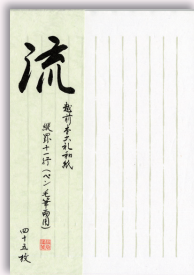 流
越前本大礼和紙
縦罫十一行(ペン毛筆両用)
四十五枚